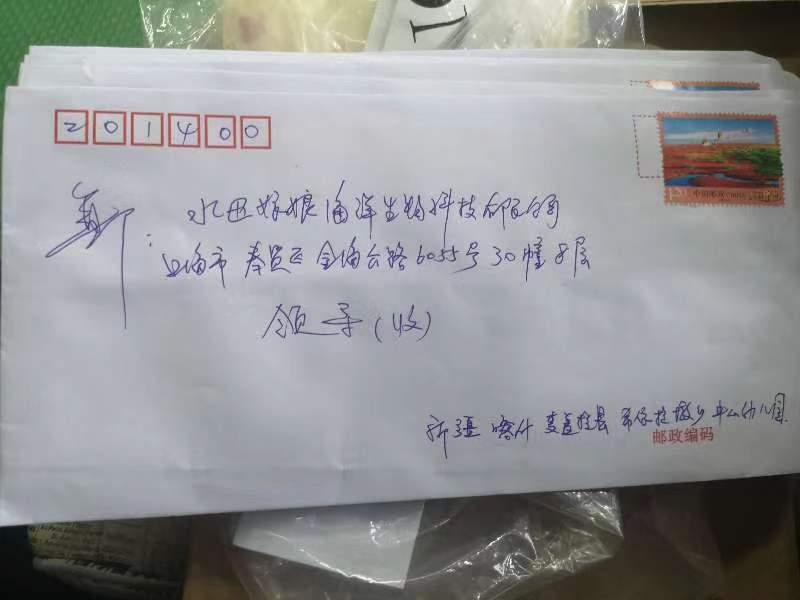 201400
寄
水巴嫁娘海洋生物科技有限公司
上海市 奉贤区 金海公路6055号30幢8层
领导(收)
新疆 喀什 麦盖提县 希依提墩乡 中心幼儿园
邮政编码
1.20 中国邮政 CHINA